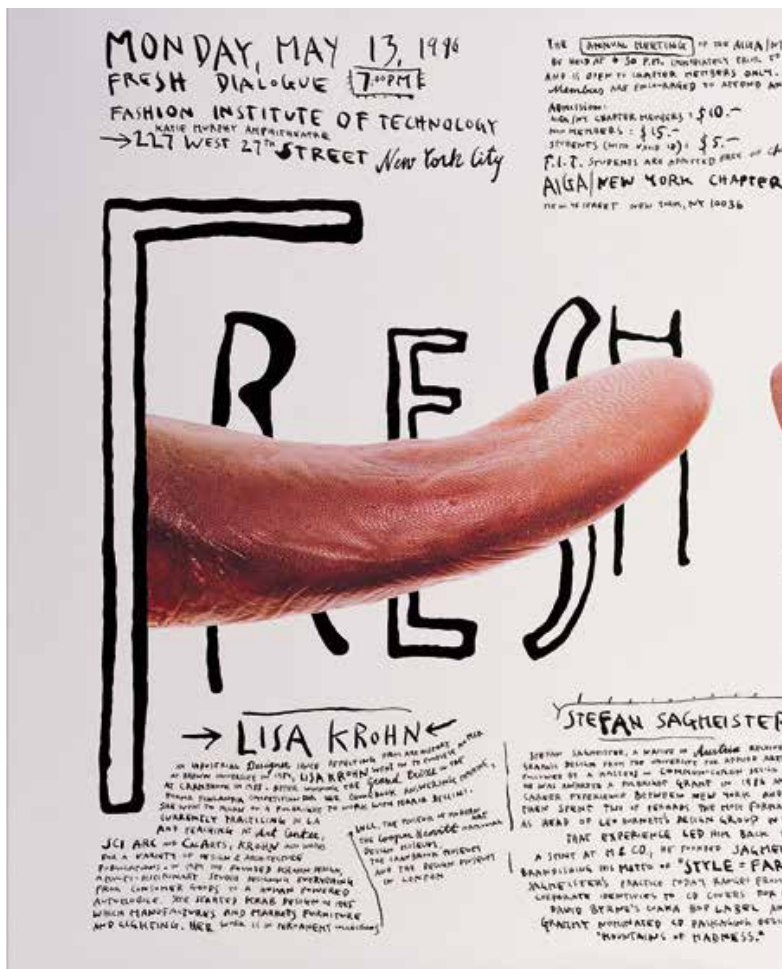 MONDAY, MAY 13, 1996
FRESH DIALOGUE 7:00PM
FASHION INSTITUTE OF TECHNOLOGY
KATIE MURPHY AMPHITHEATRE
→227 WEST 27TH STREET New York City
THE ANNUAL MEETING OF THE AIGA/NY
BE HELD AT 6 30 P.M.
AND IS OPEN TO CHAPTER MEMBERS ONLY.
Members ARE ENCOURAGED TO ATTEND AN
ADMISSION:
AIGA/NY CHAPTER MEMBERS: $10.–
NON MEMBERS: $15.–
STUDENTS (WITH VALID ID): $5.–
F.I.T. STUDENTS ARE ADMITTED FREE OF
AIGA/NEW YORK CHAPTER
STREET NEW YORK, NY 10036
FRESH
→ LISA KROHN ←
AN INDUSTRIAL Designer SINCE
AT BROWN UNIVERSITY IN LISA KROHN WENT ON TO
AT CRANBROOK IN 1988. AFTER WINNING THE Grand Prize IN THE
FORMA FINLANDIA COMPETITION FOR HER PHONEBOOK ANSWERING MACHINE,
SHE WENT TO MILAN ON A FULBRIGHT TO WORK WITH MARIO BELLINI.
CURRENTLY PRACTICING IN LA
AND TEACHING AT Art Center,
SCI ARC AND CALARTS, KROHN HAS WRITTEN
FOR A VARIETY OF DESIGN & ARCHITECTURE
PUBLICATIONS. IN SHE FOUNDED KROHN DESIGN,
A MULTI-DISCIPLINARY STUDIO DESIGNING EVERYTHING
FROM CONSUMER GOODS TO A HUMAN POWERED
AUTOMOBILE. SHE STARTED KRAB DESIGN IN 1995
WHICH MANUFACTURES AND MARKETS FURNITURE
AND LIGHTING. HER WORK IS IN PERMANENT COLLECTIONS
INCL. THE MUSEUM OF MODERN ART
THE Cooper Hewitt NATIONAL
DESIGN MUSEUM,
THE CRANBROOK MUSEUM
AND THE DESIGN MUSEUM
IN LONDON
STEFAN SAGMEISTER
STEFAN SAGMEISTER, A NATIVE OF Austria RECEIVED
GRAPHIC DESIGN FROM THE UNIVERSITY FOR APPLIED ARTS
FOLLOWED BY A MASTERS IN COMMUNICATION DESIGN
HE WAS AWARDED A FULBRIGHT GRANT IN 1986 AN
CAREER EXPERIENCE BETWEEN NEW YORK AND
THEN SPENT TWO OF PERHAPS THE MOST FORMA
AS HEAD OF LEO BURNETT'S DESIGN GROUP IN
THAT EXPERIENCE LED HIM BACK
A STINT AT M & CO., HE FOUNDED SAGMEI
BRANDISHING HIS MOTTO OF "STYLE = FAR
SAGMEISTER'S PRACTICE TODAY RANGES FROM
CORPORATE IDENTITIES TO CD COVERS FOR
DAVID BYRNE'S LUAKA BOP LABEL AN
GRAMMY NOMINATED CD PACKAGING DESI
"MOUNTAINS OF MADNESS."